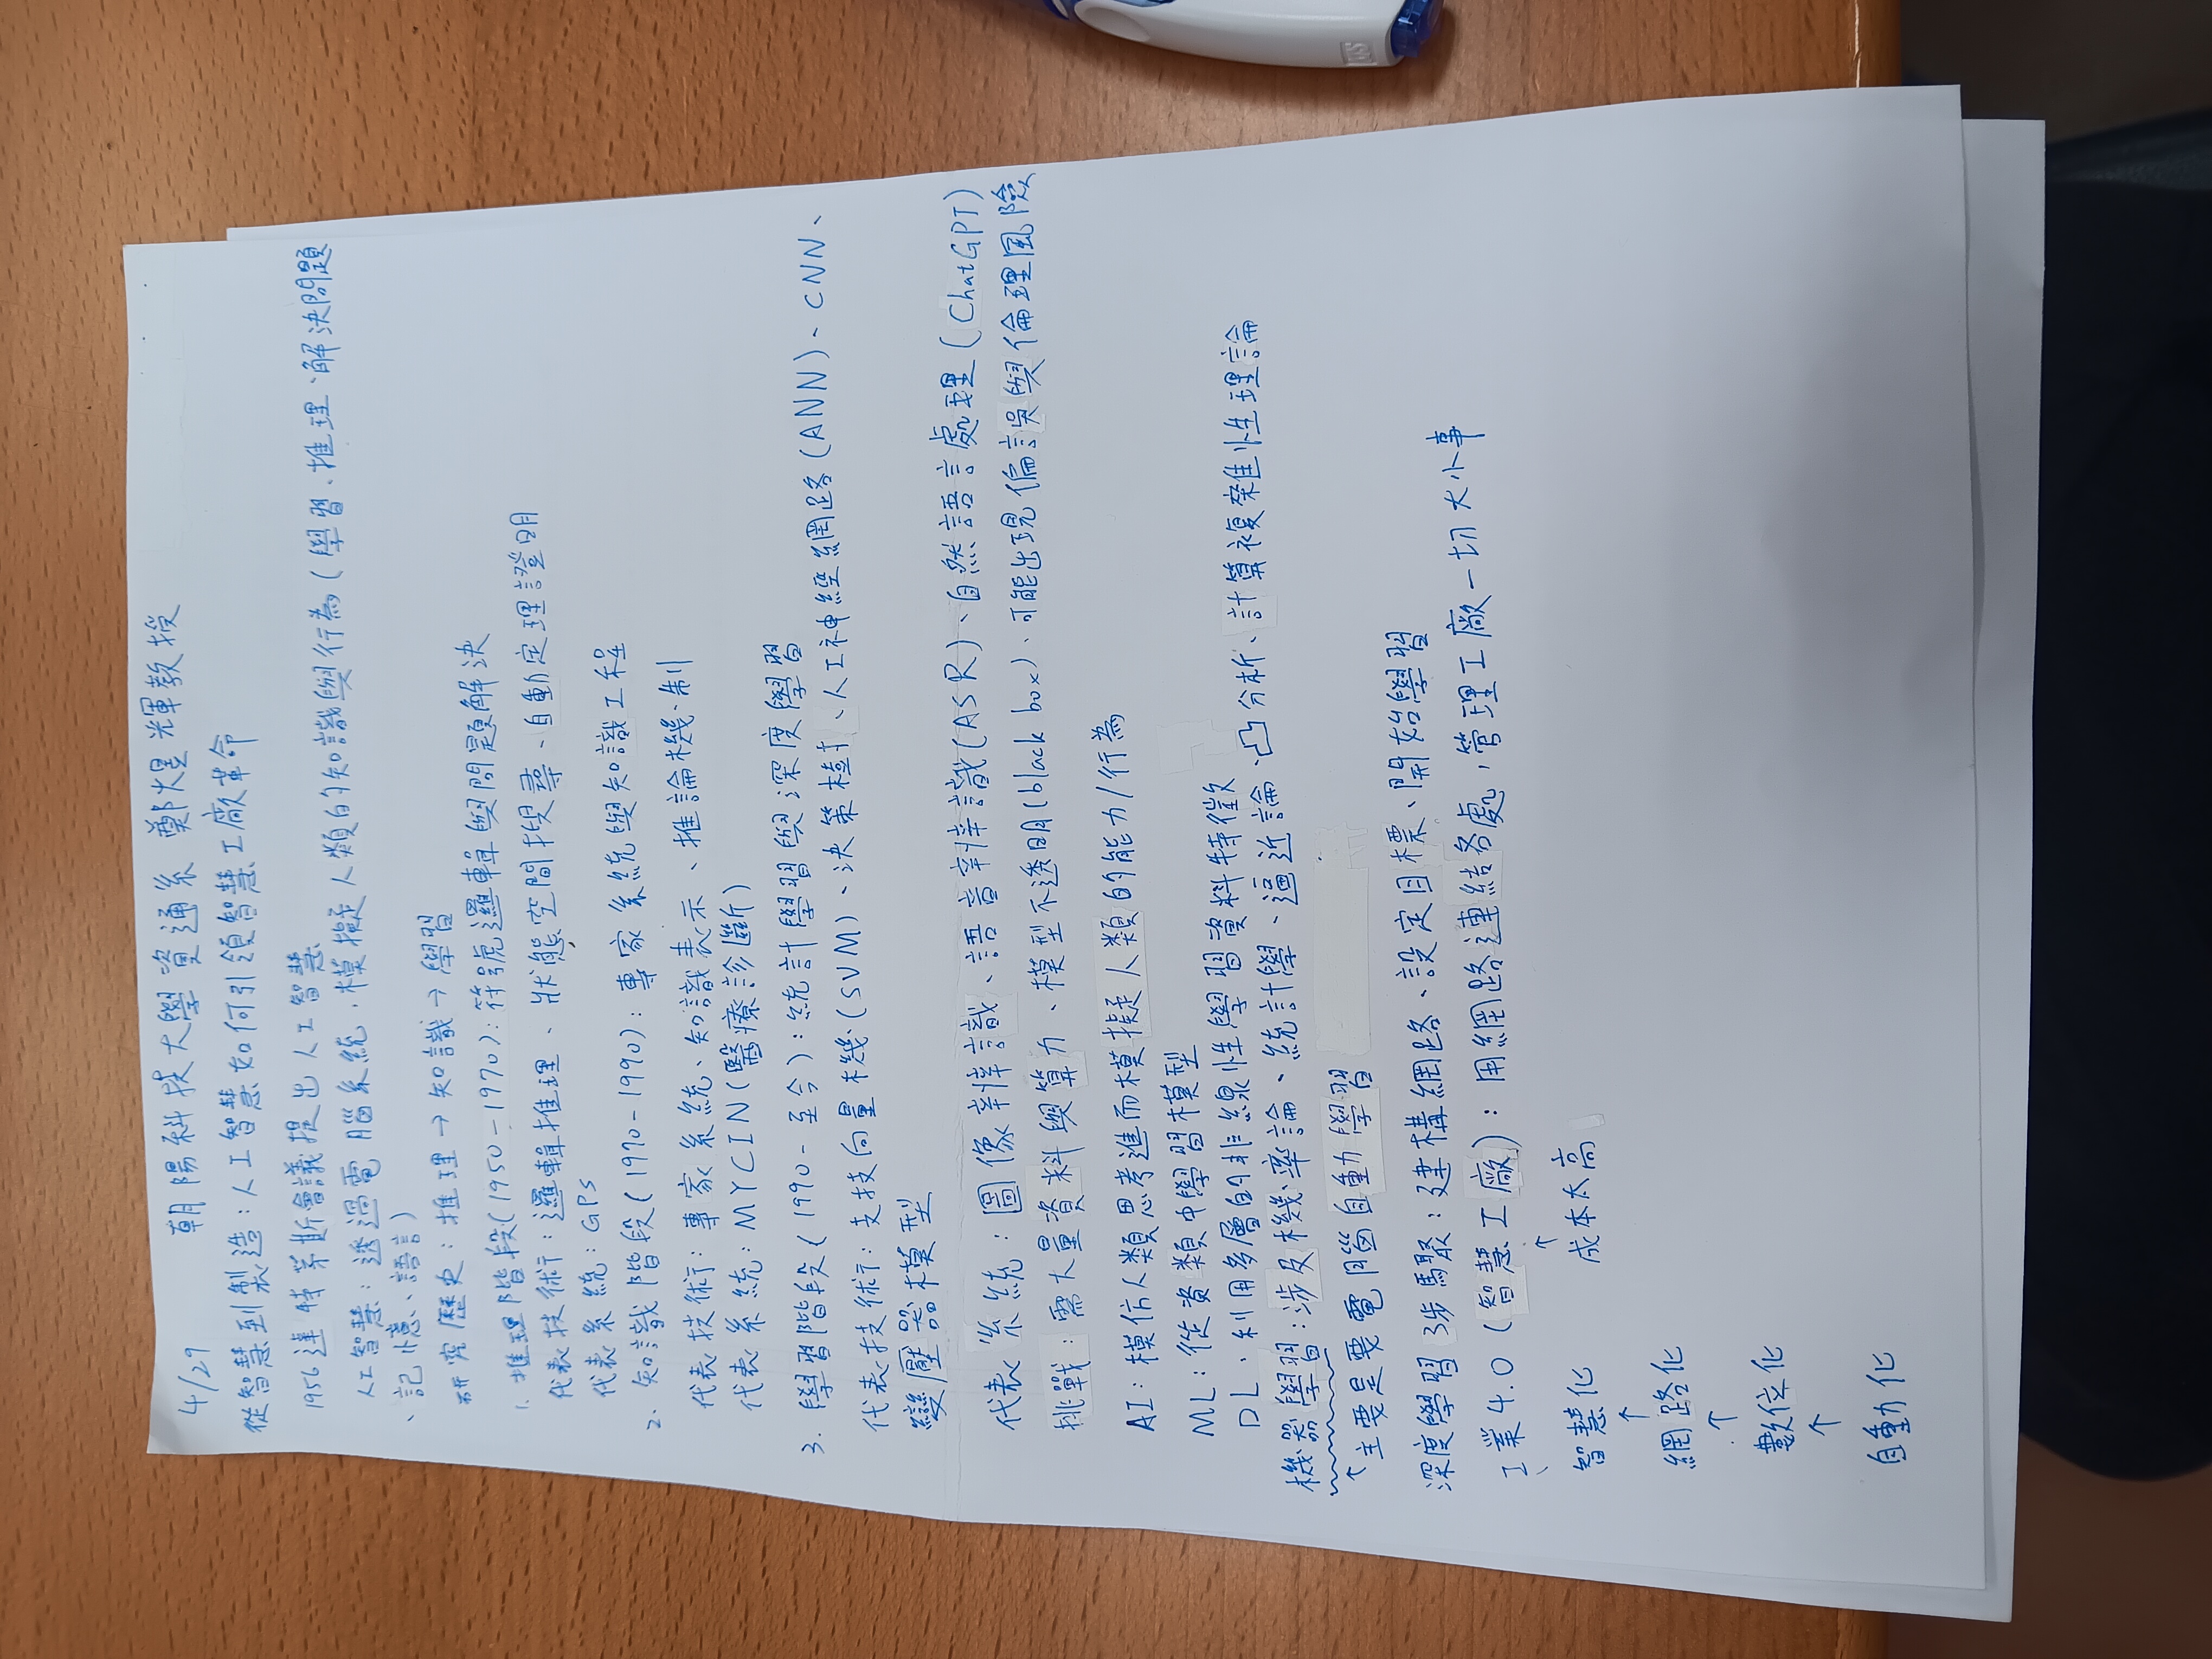 4/29 朝陽科技大學資通系 鄭煜輝教授
從智慧到製造:人工智慧如何引領智慧工廠革命
1956達特茅斯會議提出人工智慧
人工智慧:透過電腦系統,模擬人類的知識與行為(學習、推理、解決問題
、記憶、語言)
研究歷史:推理→知識→學習
1. 推理階段(1950-1970):符號邏輯與問題解決
代表技術:邏輯推理、狀態空間搜尋、自動定理證明
代表系統:GPS
2. 知識階段(1970-1990):專家系統與知識工程
代表技術:專家系統、知識表示、推論機制
代表系統:MYCIN(醫療診斷)
3. 學習階段(1990-至今):統計學習與深度學習
代表技術:支技向量機(SVM)、決策樹、人工神經網路(ANN)、CNN、
變壓器模型
代表系統:圖像辨識、語音辨識(ASR)、自然語言處理(ChatGPT)
挑戰:需大量資料與算力、模型不透明(black box)、可能出現偏誤與倫理風險
AI:模仿人類思考進而模擬人類的能力/行為
ML:從資類中學習模型
DL:利用多層的非線性學習資料特徵
機器學習:涉及機率論、統計學、逼近論、凸分析、計算複雜性理論
↑主要是要電腦自動學習
深度學習3步驟:建構網路、設定目標、開始學習
工業4.0(智慧工廠):用網路連結各處,管理工廠一切大小事
↑
智慧化 成本太高
↑
網路化
↑
數位化
↑
自動化